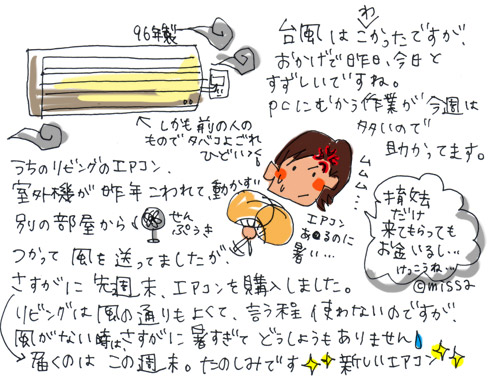 96年製
わ
台風はこかったですが、
おかげで昨日、今日と
すずしいですね。
PCにむかう作業が今週は
多いので
助かってます。
しかも前の人の
ものでタベコよごれ
ひどい
うちのリビングのエアコン、
室外機が昨年こわれて動かず
別の部屋から
せん
ぷうき
つかって風を送ってましたが
さすがに先週末、エアコンを購入しました。
リビングは風の通りもよくて、言う程使わないのですが、
風がない時はさすがに暑すぎてどうしようもありません
届くのはこの週末。たのしみです新しいエアコン
エアコン
あるのに
暑い…
イライラ…
だけ
来てもらっても
お金いるし…
けっこうね…
@missa